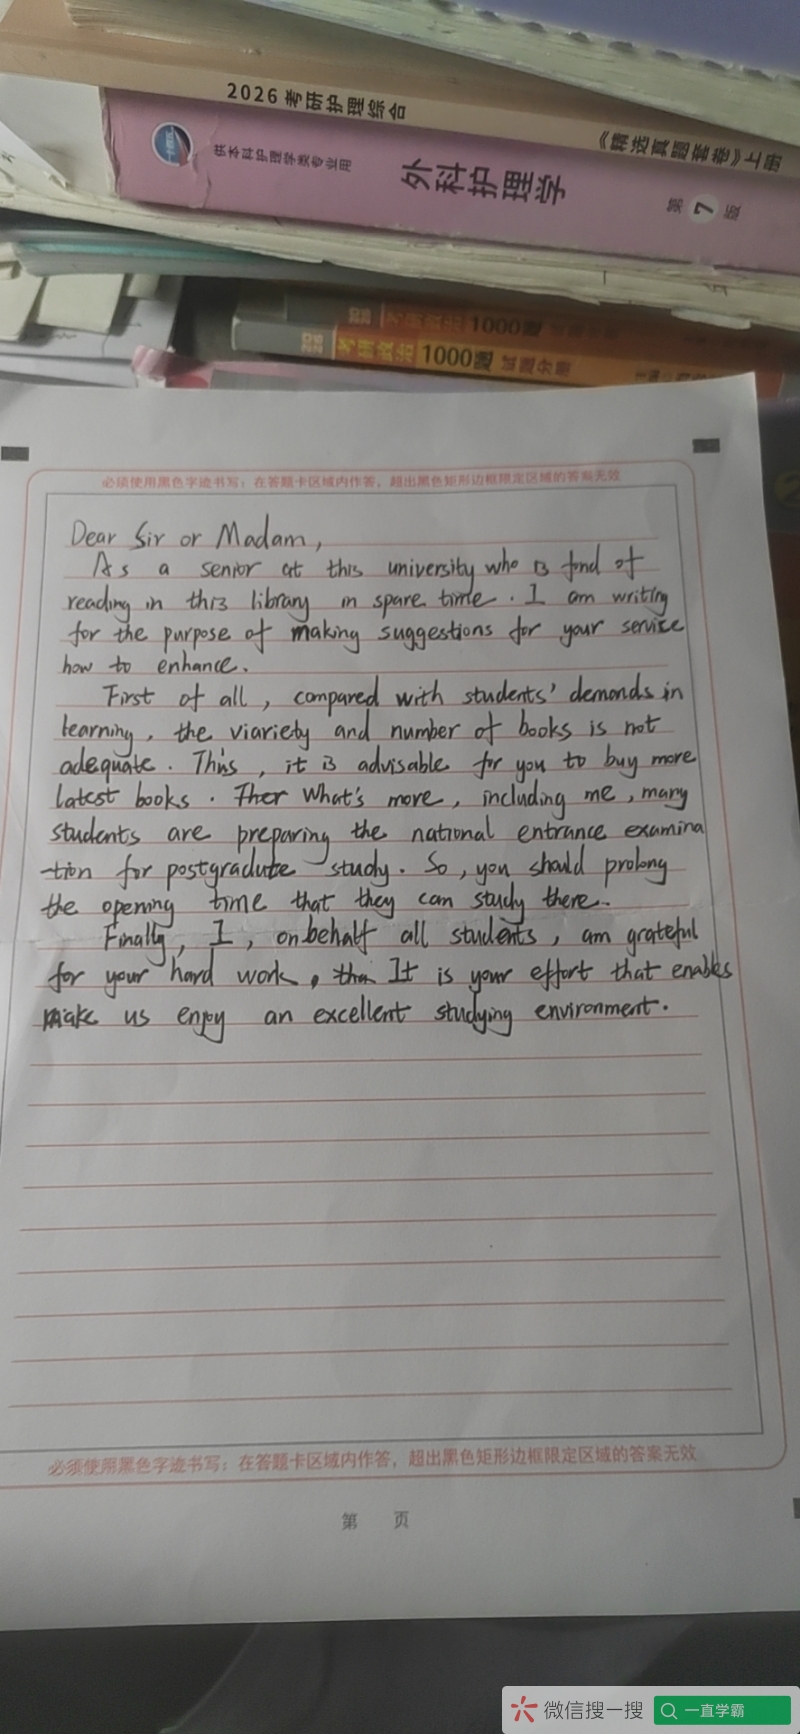 2026考研护理综合
《精选真题套卷》上册
供本科护理学类专业用
外科护理学
第7版
考研政治1000题
2026 考研政治 1000题 试题分册
必须使用黑色字迹书写：在答题卡区域内作答，超出黑色矩形边框限定区域的答案无效
Dear Sir or Madam,
As a senior at this university who is fond of
reading in this library in spare time. I am writing
for the purpose of making suggestions for your service
how to enhance.
First of all, compared with students' demands in
learning, the viariety and number of books is not
adequate. Thus, it is advisable for you to buy more
latest books. What's more, including me, many
students are preparing the national entrance examina
-tion for postgradute study. So, you should prolong
the opening time that they can study there.
Finally, I, on behalf all students, am grateful
for your hard work. It is your effort that enables
make us enjoy an excellent studying environment.
必须使用黑色字迹书写：在答题卡区域内作答，超出黑色矩形边框限定区域的答案无效
第 页
微信搜一搜
一直学霸